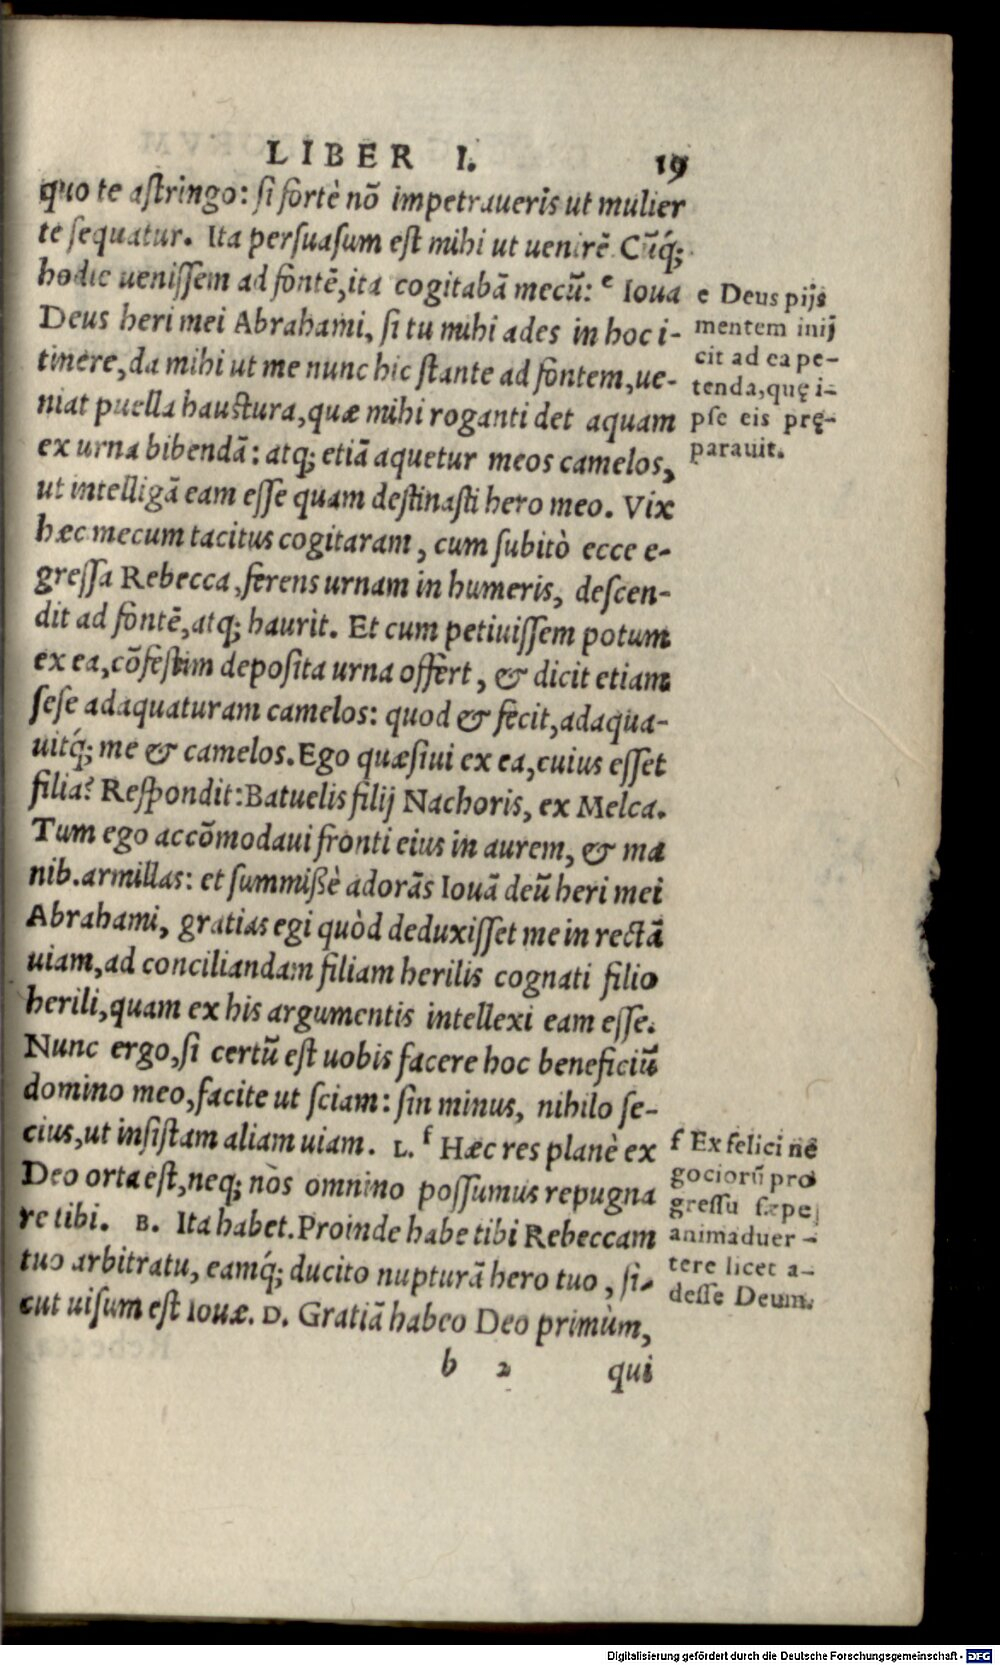 LIBER I. 19
quo te aſtringo: ſi fortè nō impetraueris ut mulier
te ſequatur. Ita perſuaſum eſt mihi ut uenirē. Cūq́;
hodie ueniſſem ad fontē, ita cogitabā mecū: ᵉ Ioua
Deus heri mei Abrahami, ſi tu mihi ades in hoc i-
tinere, da mihi ut me nunc hic ſtante ad fontem, ue-
niat puella hauſtura, quæ mihi roganti det aquam
ex urna bibendā: atq; etiā aquetur meos camelos,
ut intelligā eam eſſe quam deſtinaſti hero meo. Vix
hæc mecum tacitus cogitaram, cum ſubitò ecce e-
greſſa Rebecca, ferens urnam in humeris, deſcen-
dit ad fontē, atq; haurit. Et cum petiuiſſem potum
ex ea, cōfeſtim depoſita urna offert, & dicit etiam
ſeſe adaquaturam camelos: quod & fecit, adaqua-
uitq́; me & camelos. Ego quæſiui ex ea, cuius eſſet
filia? Reſpondit: Batuelis filij Nachoris, ex Melca.
Tum ego accōmodaui fronti eius in aurem, & ma
nib. armillas: et ſummißè adorās Iouā deū heri mei
Abrahami, gratias egi quòd deduxiſſet me in rectā
uiam, ad conciliandam filiam herilis cognati filio
herili, quam ex his argumentis intellexi eam eſſe.
Nunc ergo, ſi certū eſt uobis facere hoc beneficiū
domino meo, facite ut ſciam: ſin minus, nihilo ſe-
cius, ut inſiſtam aliam uiam. L. ᶠ Hæc res planè ex
Deo orta eſt, neq; nos omnino poſſumus repugna
re tibi. B. Ita habet. Proinde habe tibi Rebeccam
tuo arbitratu, eamq́; ducito nupturā hero tuo, ſi-
cut uiſum eſt Iouæ. D. Gratiā habeo Deo primùm,
b 2 qui
e Deus pijs
mentem inij
cit ad ea pe-
tenda, quę i-
pſe eis prę-
parauit.
f Ex felici ne
gociorū pro
greſſu ſæpe
animaduer-
tere licet a-
deſſe Deum.
Digitalisierung gefördert durch die Deutsche Forschungsgemeinschaft - DFG